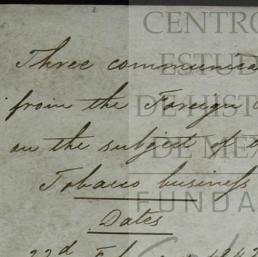 Three communica
from the Foreign
on the subject of t
Tobacco business
Dates
22d
CENTRO
ESTUD
DE HIST
DE MEX
FUNDA